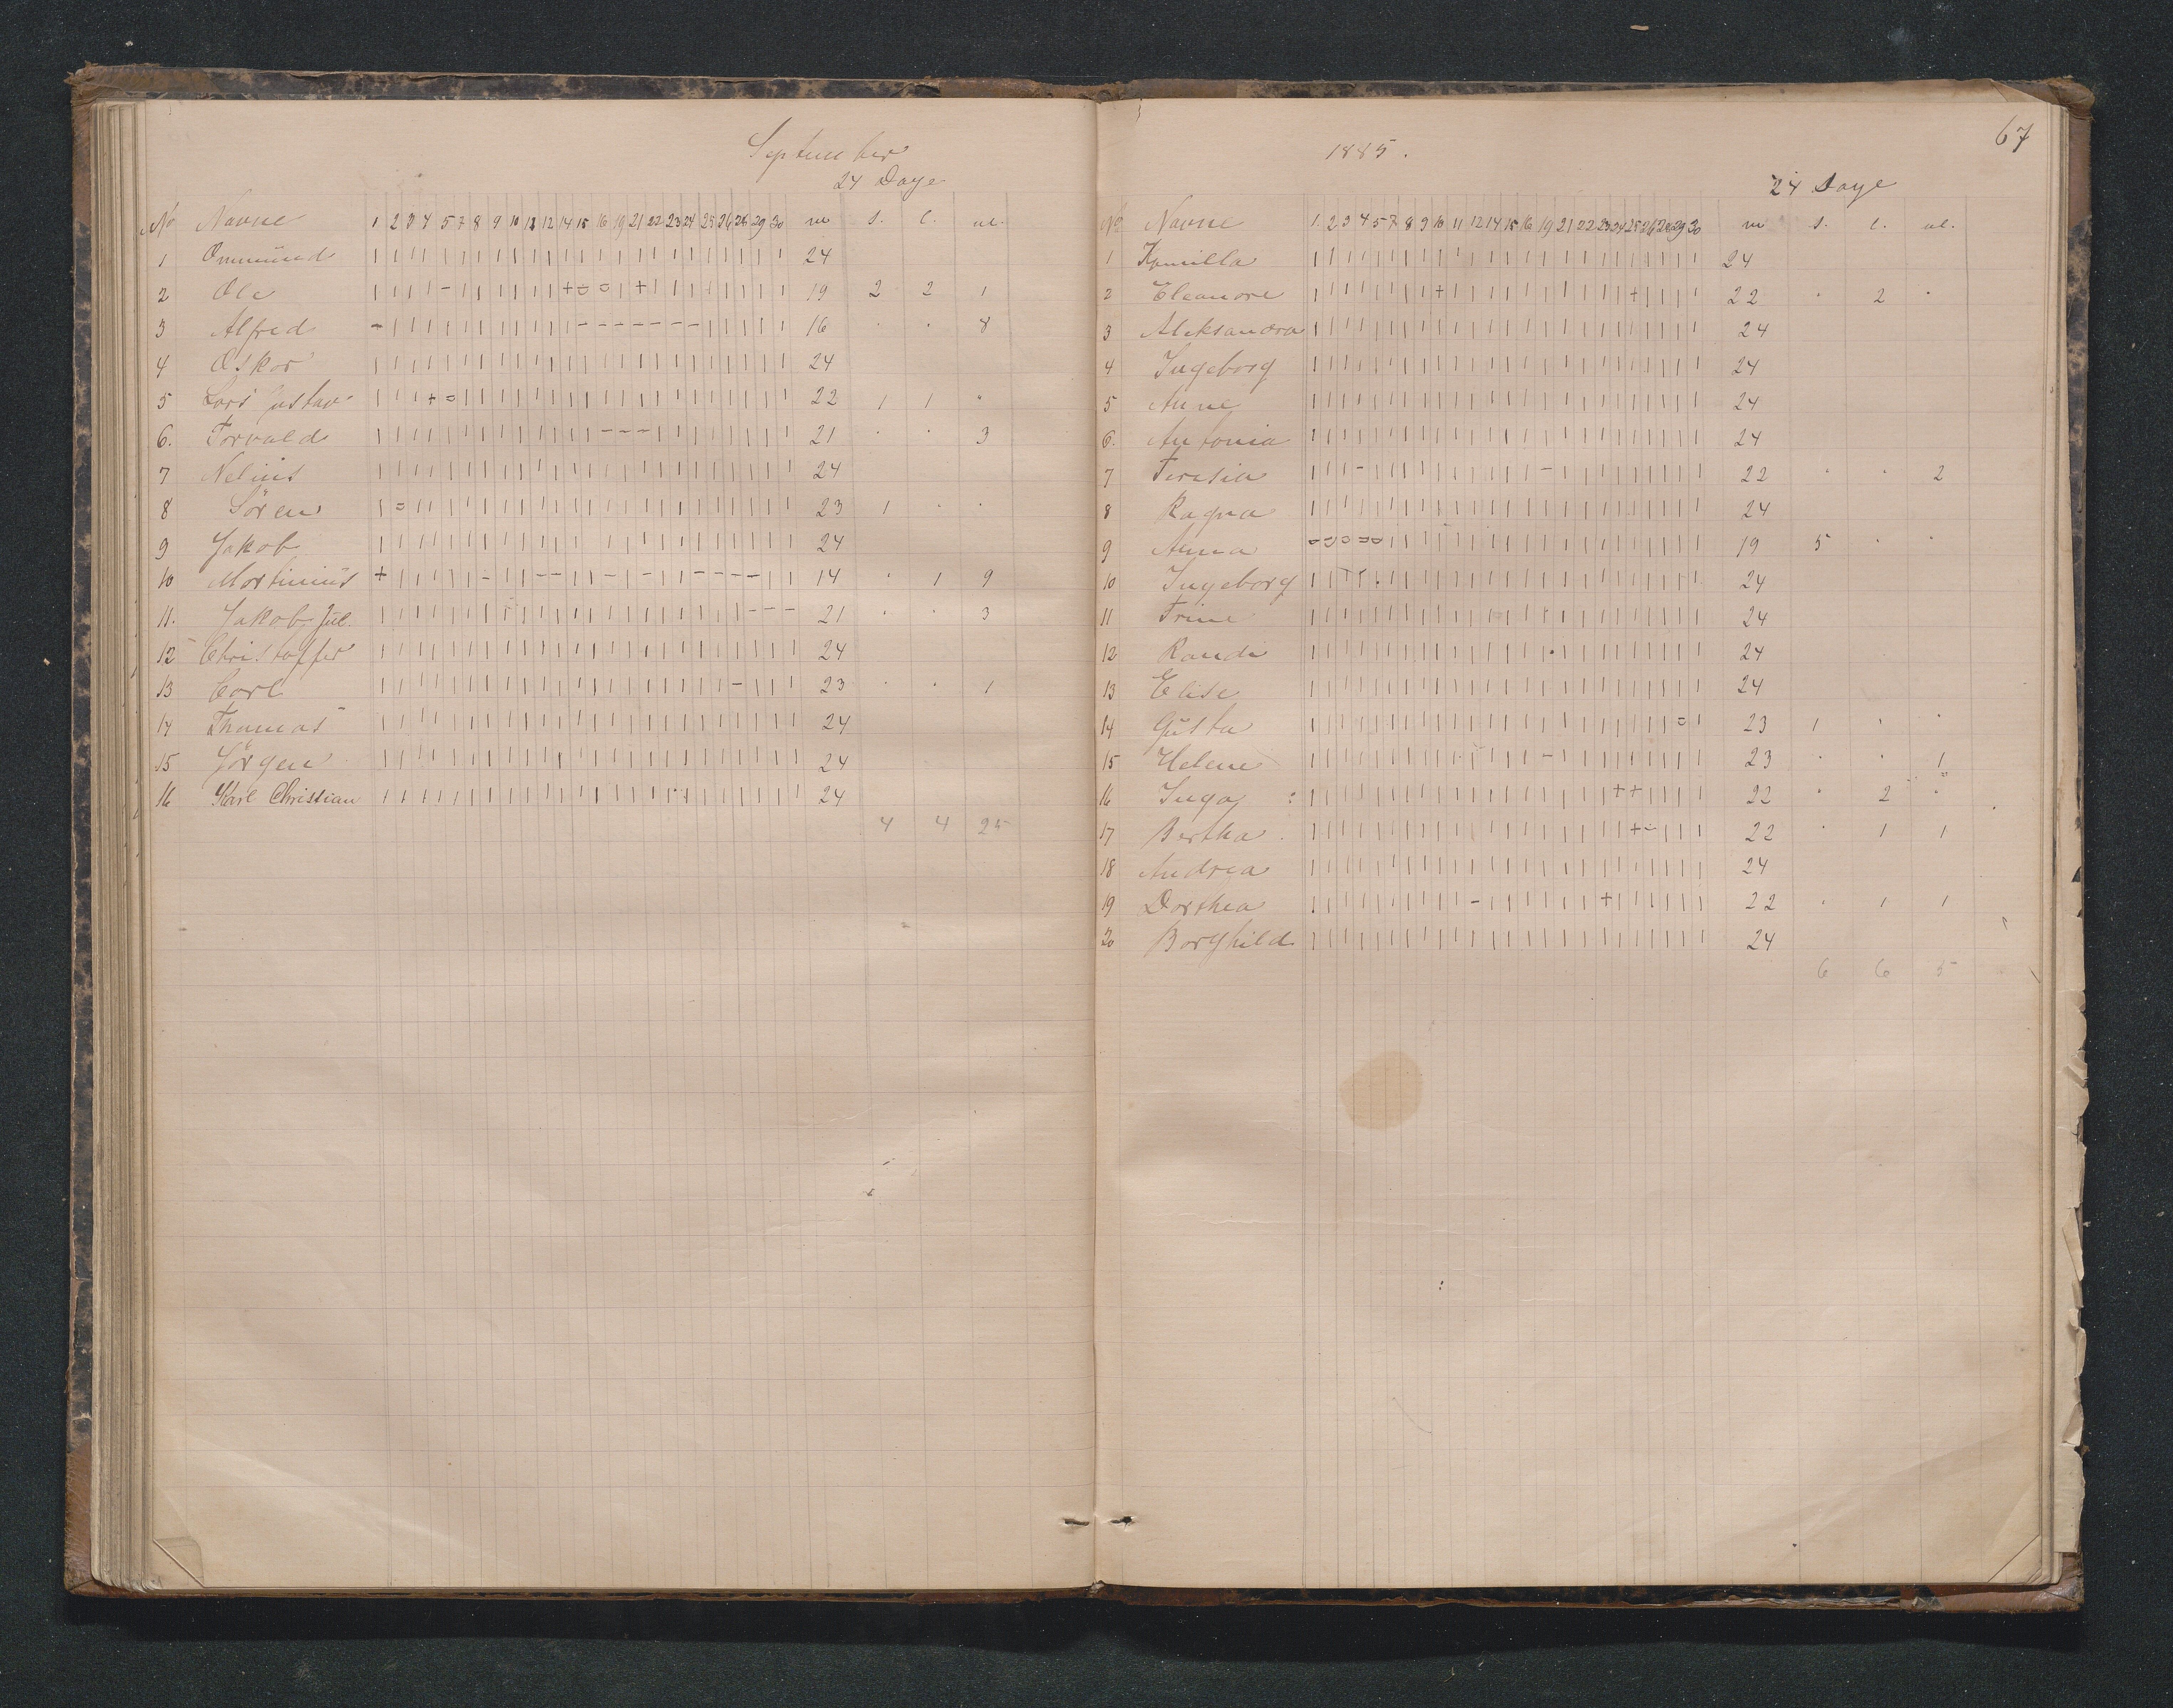 September
24 Dage
No Navne 1 2 3 4 5 7 8 9 10 11 12 14 15 16 19 21 22 23 24 25 26 28 29 30 m s. l. ul.
1 Ommünd 24
2 Ole 19 2 2 1
3 Alfred 16 . . 8
4 Oskar 24
5 Lars Gustav 22 1 1 "
6. Torvald 21 . . 3
7 Nelius 24
8 Sören 23 1 . .
9 Jakob 24
10 Martinius 14 . 1 9
11. Jakob Jul. 21 . . 3
12 Christoffer 24
13 Carl 23 . . 1
14 Thomas 24
15 Jörgen 24
16 Karl Christian 24
4 4 25
67
1885.
24 Dage
No Navne 1. 2 3 4 5 7 8 9 10 11 12 14 15 16 19 21 22 23 24 25 26 28 29 30 m s. l. ul.
1 Kamilla 24
2 Eleanore 22 . 2 .
3 Aleksandra 24
4 Ingeborg 24
5 Anne 24
6. Antonia 24
7 Teresia 22 . . 2
8 Ragna 24
9 Anna 19 5 . .
10 Ingeborg 24
11 Trine 24
12 Randi 24
13 Elise 24
14 Güsta 23 1 . .
15 Helene 23 . . 1
16 Inga 22 . 2 "
17 Bertha 22 . 1 1
18 Andrea 24
19 Dorthea 22 . 1 1
20 Borghild 24
6 6 5